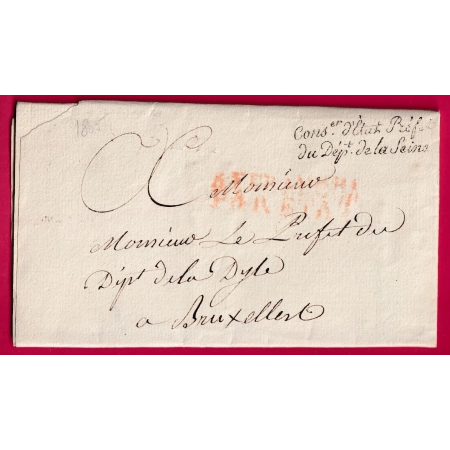 1805
Conser. d'Etat Préf.
du Dépt. de la Seine
A Monsieur
AFFRANCHI
PAR ETAT
Monsieur Le Prefet du
Dépt de la Dyle
a Bruxelles